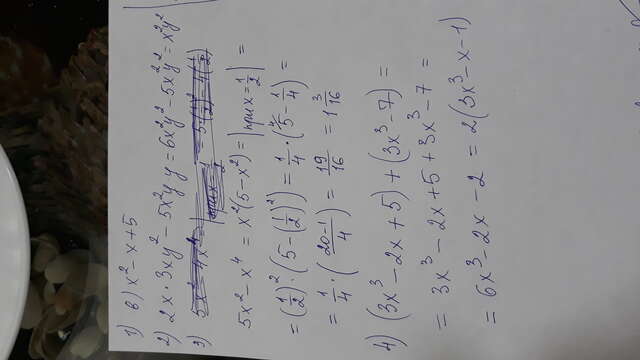 1) в) x² - x + 5
2) 2x · 3xy² - 5x²y y = 6x²y² - 5x²y² = x²y²
3)
5x² - x⁴ = x²(5 - x²) = |при x = 1/2| =
= (1/2)² · (5 - (1/2)²) = 1/4 · (⁴5 - 1/4) =
= 1/4 · (20-1/4) = 19/16 = 1 3/16
4) (3x³ - 2x + 5) + (3x³ - 7) =
= 3x³ - 2x + 5 + 3x³ - 7 =
= 6x³ - 2x - 2 = 2(3x³ - x - 1)